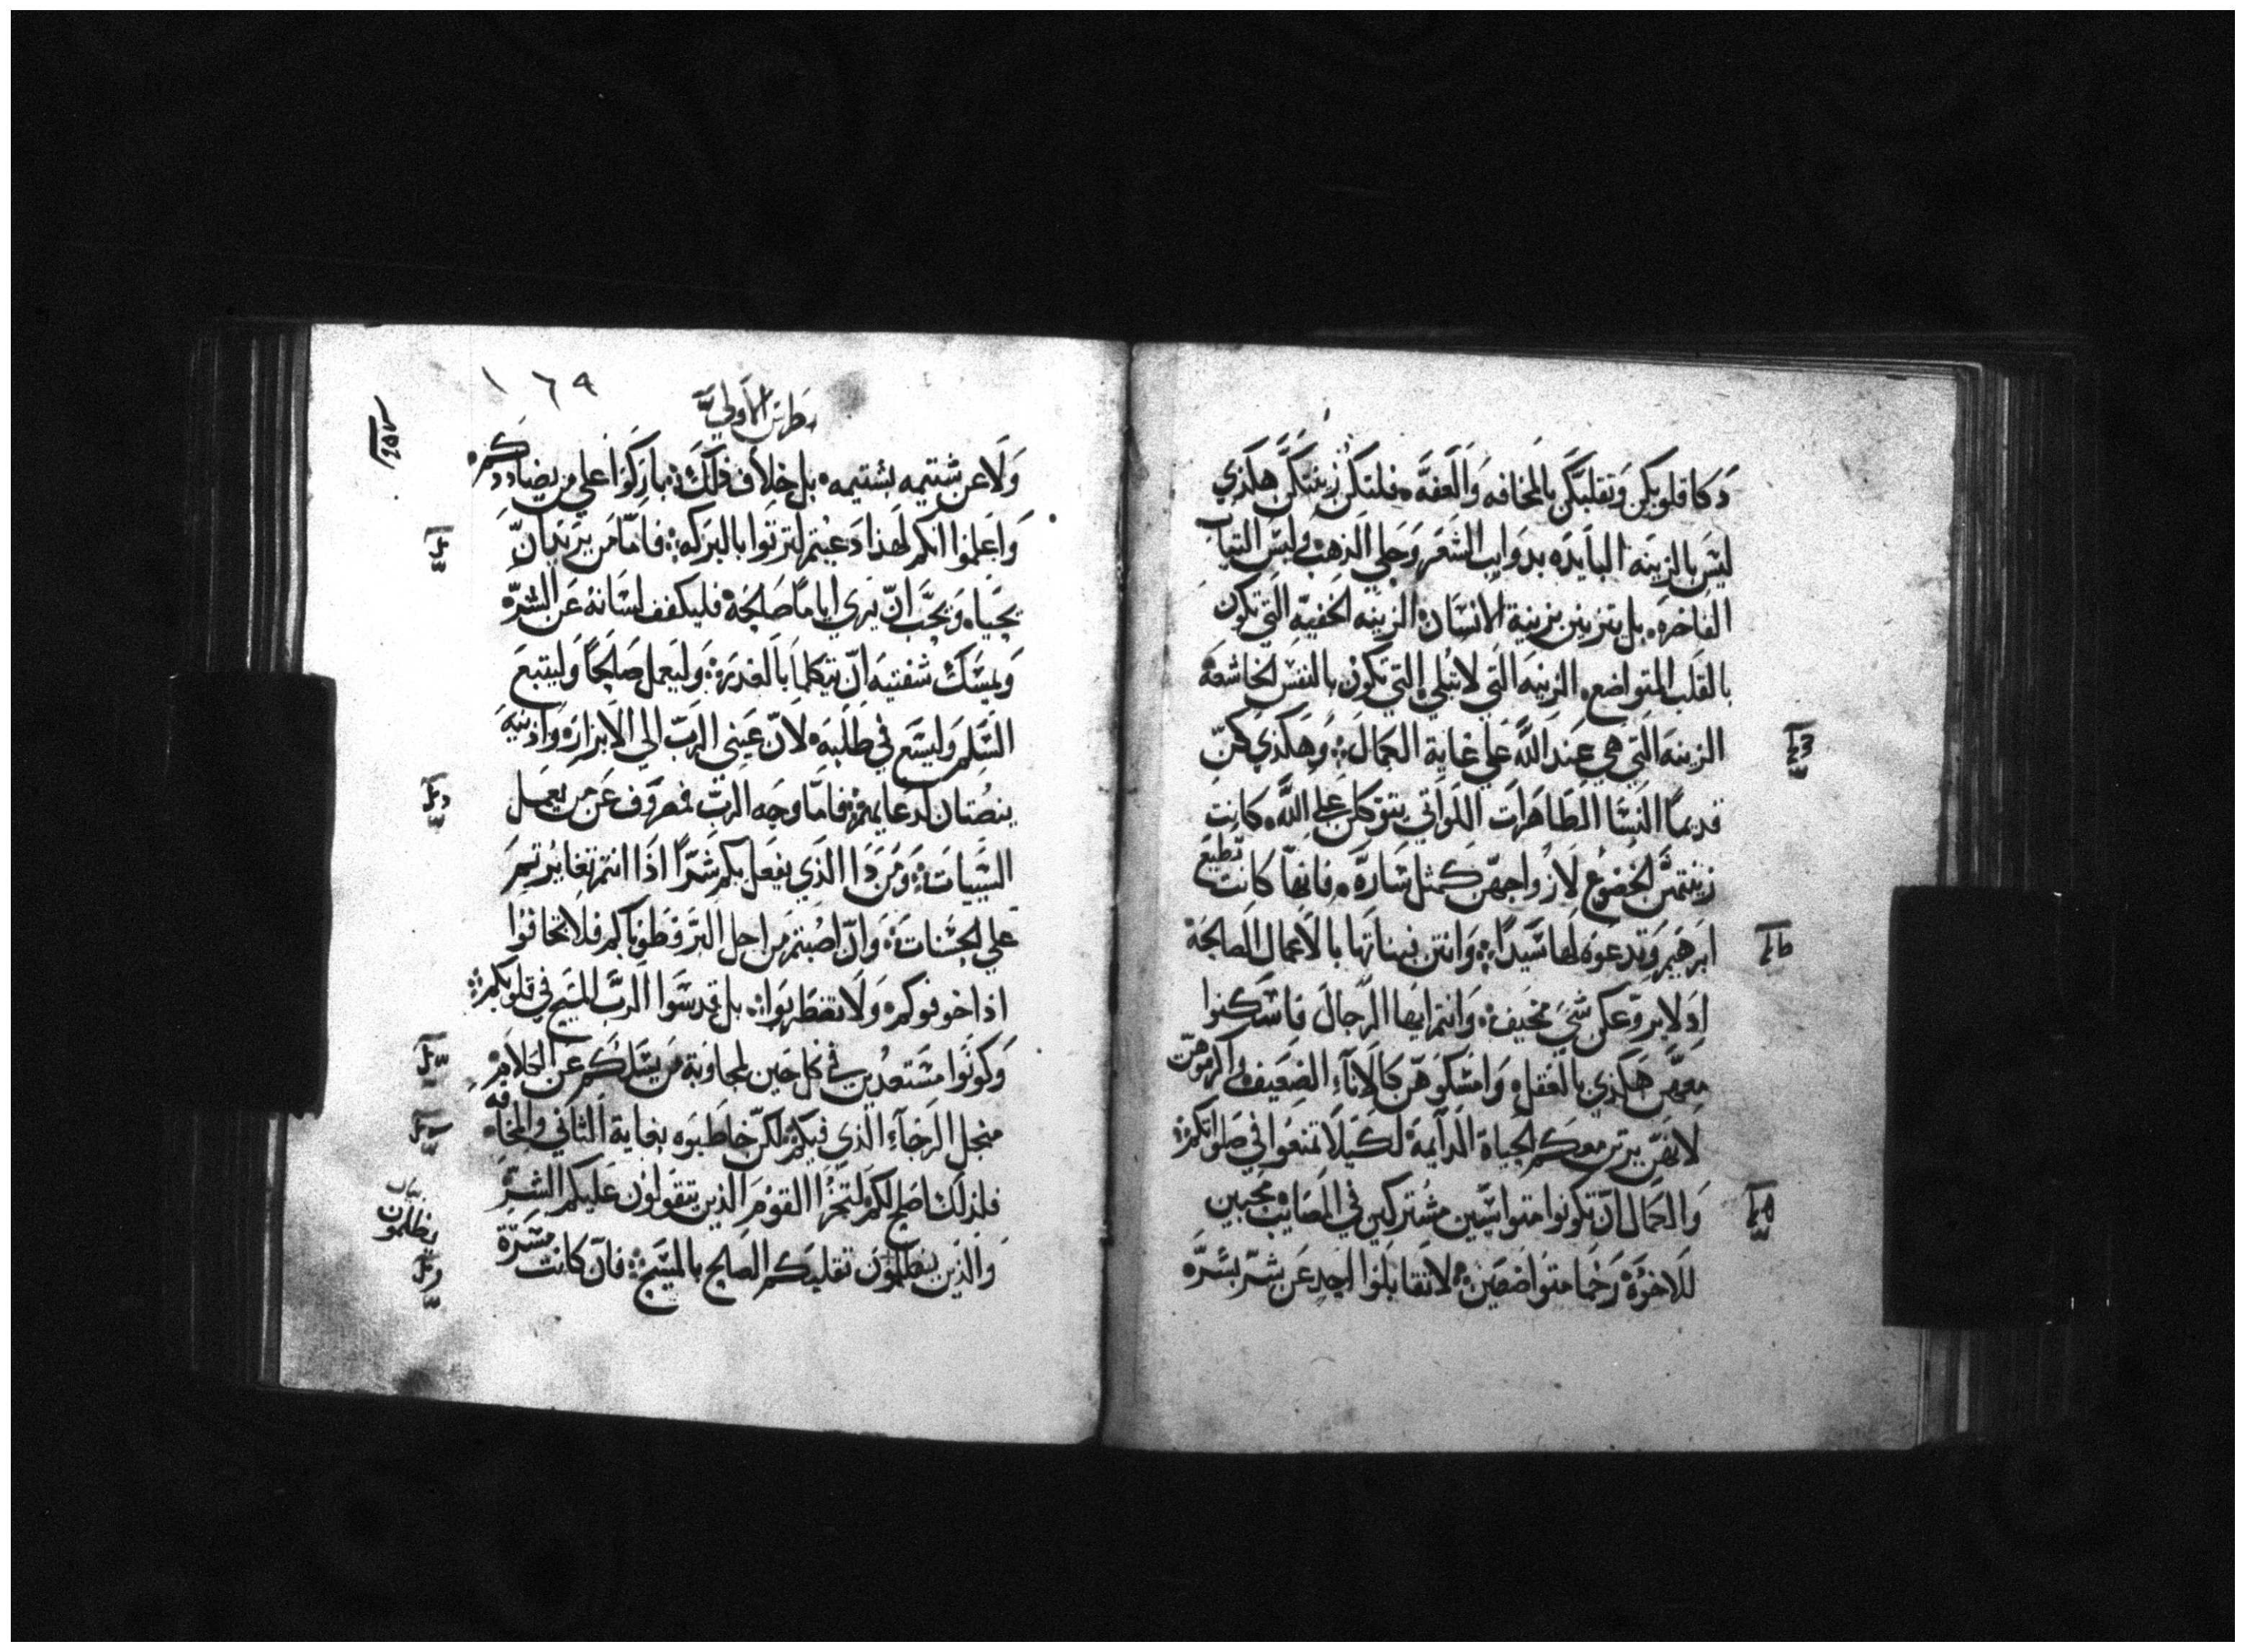 دكا قلوبكن وتقلبكن بالمخافه والعفه فلتكن زينتكن هكذي
ليس بالزينه البايده بدوايب الشعر وحلي الذهب ولبس التياب
الفاخره بل يتزين بزينة الانسان الزينه الخفيه التي تكون
بالقلب المتواضع الزينه التي لا تبلي التي تكون بالنفس الخاشعة
الزينه التي هي عند الله علي غاية الكمال وهكذي كن
قديماً النسا الطاهرات اللواتي يتوكلن علي الله كانت
زينتهن الخضوع لازواجهن كمثل ساره فانها كانت تطيع
ابرهيم وتدعوه لها سيداً وانتن بناتها بالاعمال الصالحة
اذ لا يروعكن شي مخيف وانتم ايها الرجال فاسكنوا
معهن هكذي بالعقل وامسكوهن كالاناء الضعيف واكرموهن
لانهن يرتن معكم الحياة الدايمة لكيلا تمنعوا في صلواتكم
والكمال ان تكونوا متواسين مشتركين في المصايب محبين
للاخوة رحما متواضعين لا تقابلوا احد عن شر بشره
١٦٩
بطرس الاولي
ولا عن شتيمه بشتيمه بل خلاف ذلك باركوا علي من يضاددكم
واعلموا انكم لهذا دعيتم لترتوا بالبركه فاما من يريد ان
يحياه ويحب ان يري اياماً صالحة فليكفف لسانه عن الشره
ويمسك شفتيه ان يتكلما بالغدره وليعمل صالحاً وليتبع
السلم وليسع في طلبه لان عيني الرب الي الابراره واذنيه
ينصتان لدعايهم فاما وجه الرب فمصروف عن من يعمل
السييات ومن دا الذي يفعل بكم شراً اذا انتم تغايرتم
علي الحسنات وان اصبتم من اجل البر فطوباكم فلا تخافوا
اذا خوفوكم ولا تضطربوا بل قدسوا الرب المسيح في قلوبكم
وكونوا مستعدين في كل حين لمجاوبة من يسلكم عن الكلام
منجل الرجاء الذي فيكم لكن خاطبوه بغاية التاني والمخافه
فلذلك اصلح لكم لتخزا القوم الذين يتقولون عليكم الشر
والذين ينظلمون تقلبكم الصالح بالمسيح فان كانت مسرة
يظلمون